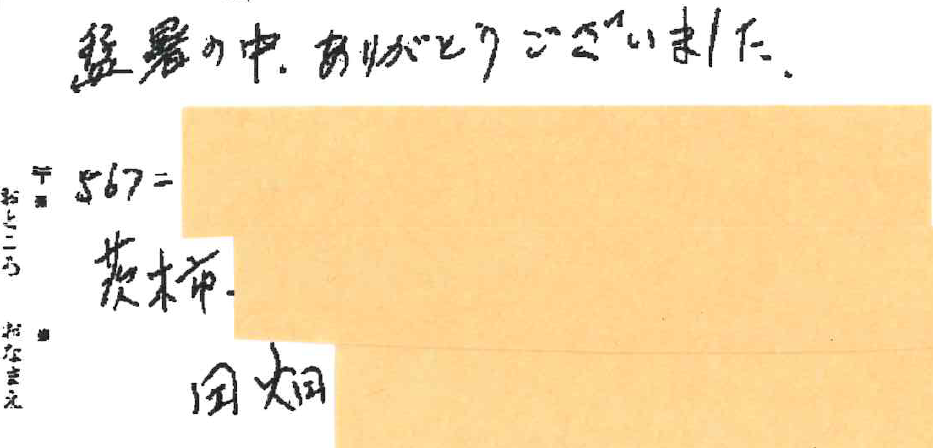 猛暑の中、ありがとうございました。
〒 567=
おところ
茨木市
おなまえ
田畑